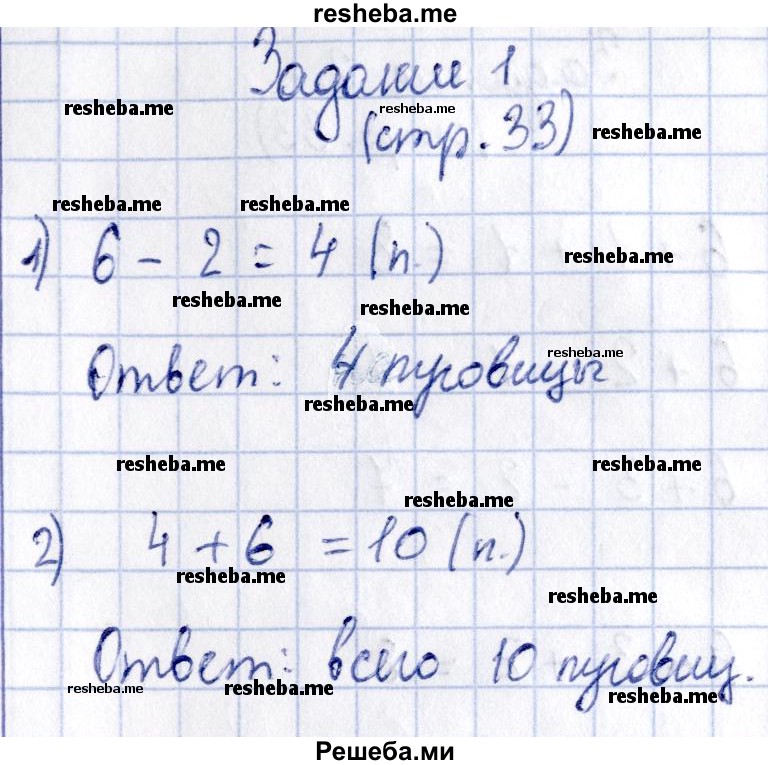 resheba.me
Задание 1
resheba.me resheba.me
(стр. 33) resheba.me
resheba.me resheba.me
1) 6 - 2 = 4 (п.) resheba.me
resheba.me resheba.me
resheba.me
Ответ: 4 пуговицы
resheba.me
resheba.me resheba.me
resheba.me
2) 4 + 6 = 10 (п.)
resheba.me
resheba.me
Ответ: всего 10 пуговиц.
resheba.me resheba.me resheba.me
Решеба.ми